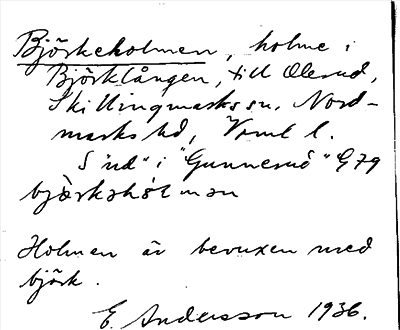 Björkeholmen, holme i
Björklången, till Olerud,
Skillingmarks sn, Nord-
marks hd, Vrml l.
S "ud" i "Gunnerud" G79
björkəhòlmən
Holmen är bevuxen med
björk.
E. Andersson 1936.